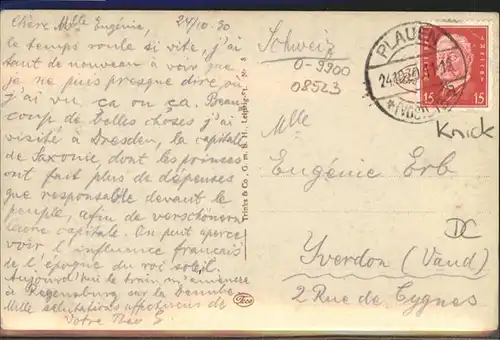 Chère Mlle Eugénie, 24/10-30
le temps roule si vite, j'ai
tant de nouveau à voir que
je ne puis presque dire où
j'ai vu ça ou ça. Beau
coup de belles choses j'ai
visité à Dresden, la capitale
de Saxonie, dont les princes
ont fait plus de dépenses
que responsable devant le
peuple, afin de verschönern
leure capitale. On put aperce
voir l'influence français
de l'époque du roi soleil.
Aujourd'hui le train m'emènere
à Regensburg sur la Danube.
Mille salutations affectueux de
Votre Theo E.
Trinks & Co., G. m. b. H., Leipzig-St. Nr. 8
Trco
Schweiz
0-9900
08523
PLAUEN
24.10.30
(VOGTL)
15 15
Knick
Mlle
Eugénie Erb
DC
Yverdon (Vaud)
2 Rue de Cygnes